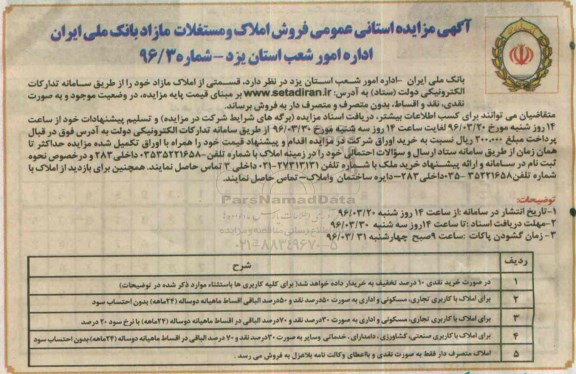 آگهی مزایده استانی عمومی فروش املاک و مستغلات مازاد بانک ملی ایران
اداره امور شعب استان یزد - شماره ۹۶/۳
بانک ملی ایران - اداره امور شعب استان یزد در نظر دارد، قسمتی از املاک مازاد خود را از طریق سامانه تدارکات
الکترونیکی دولت (ستاد) به آدرس: www.setadiran.ir بر مبنای قیمت پایه مزایده، در وضعیت موجود و به صورت
نقدی، نقد و اقساط، بدون متصرف و متصرف دار به فروش برساند.
متقاضیان می توانند برای کسب اطلاعات بیشتر، دریافت اسناد مزایده (برگه های شرایط شرکت در مزایده) و تسلیم پیشنهادات خود از ساعت
۱۴ روز شنبه مورخ ۹۶/۰۳/۲۰ لغایت ساعت ۱۴ روز سه شنبه مورخ ۹۶/۰۳/۳۰ از طریق سامانه تدارکات الکترونیکی دولت به آدرس فوق در قبال
پرداخت مبلغ ۲۰۰،۰۰۰ ریال نسبت به خرید اوراق شرکت در مزایده اقدام و پیشنهاد قیمت خود را همراه با اوراق تکمیل شده مزایده حداکثر تا
همان زمان از طریق سامانه ستاد ارسال و سؤالات احتمالی خود را در زمینه املاک با شماره تلفن ۰۳۵۳۵۲۲۱۶۵۸ داخلی ۲۸۳ و درخصوص نحوه
ثبت نام در سامانه و ارائه پیشنهاد خرید ملک با شماره تلفن ۲۷۳۱۳۱۳۱-۰۲۱ داخلی ۳ تماس حاصل نمایند. همچنین برای بازدید از املاک با
شماره تلفن ۳۵۲۲۱۶۵۸-۰۳۵ داخلی ۲۸۳ - دایره ساختمان و املاک - تماس حاصل نمایند.
توضیحات:
۱- تاریخ انتشار در سامانه: از ساعت ۱۴ روز شنبه ۹۶/۰۳/۲۰
۲- مهلت دریافت اسناد: تا ساعت ۱۴ روز سه شنبه ۹۶/۰۳/۳۰
۳- زمان گشودن پاکات: ساعت ۹ صبح چهارشنبه ۹۶/۰۳/۳۱
ParsNamadData
۰۲۱-۸۸۳۴۹۶۷۰-۵
ردیف شرح
۱ در صورت خرید نقدی ۱۰ درصد تخفیف به خریدار داده خواهد شد( برای کلیه کاربری ها باستثناء موارد ذکر شده در توضیحات)
۲ برای املاک با کاربری تجاری، مسکونی و اداری به صورت ۵۰درصد نقد و ۵۰درصد الباقی اقساط ماهیانه دوساله (۲۴ماهه) بدون احتساب سود
۳ برای املاک با کاربری تجاری، مسکونی و اداری به صورت ۳۰درصد نقد و ۷۰درصد الباقی در اقساط ماهیانه دوساله (۲۴ماهه) با نرخ سود ۲۰ درصد
۴ برای املاک با کاربری صنعتی، کشاورزی، دامداری، خدماتی وسایر به صورت ۳۰درصد نقد و ۷۰ درصد الباقی در اقساط ماهیانه دوساله (۲۴ماهه) بدون احتساب سود
۵ املاک متصرف دار فقط به صورت نقدی و بااعطای وکالت نامه بلاعزل به فروش می رسد .